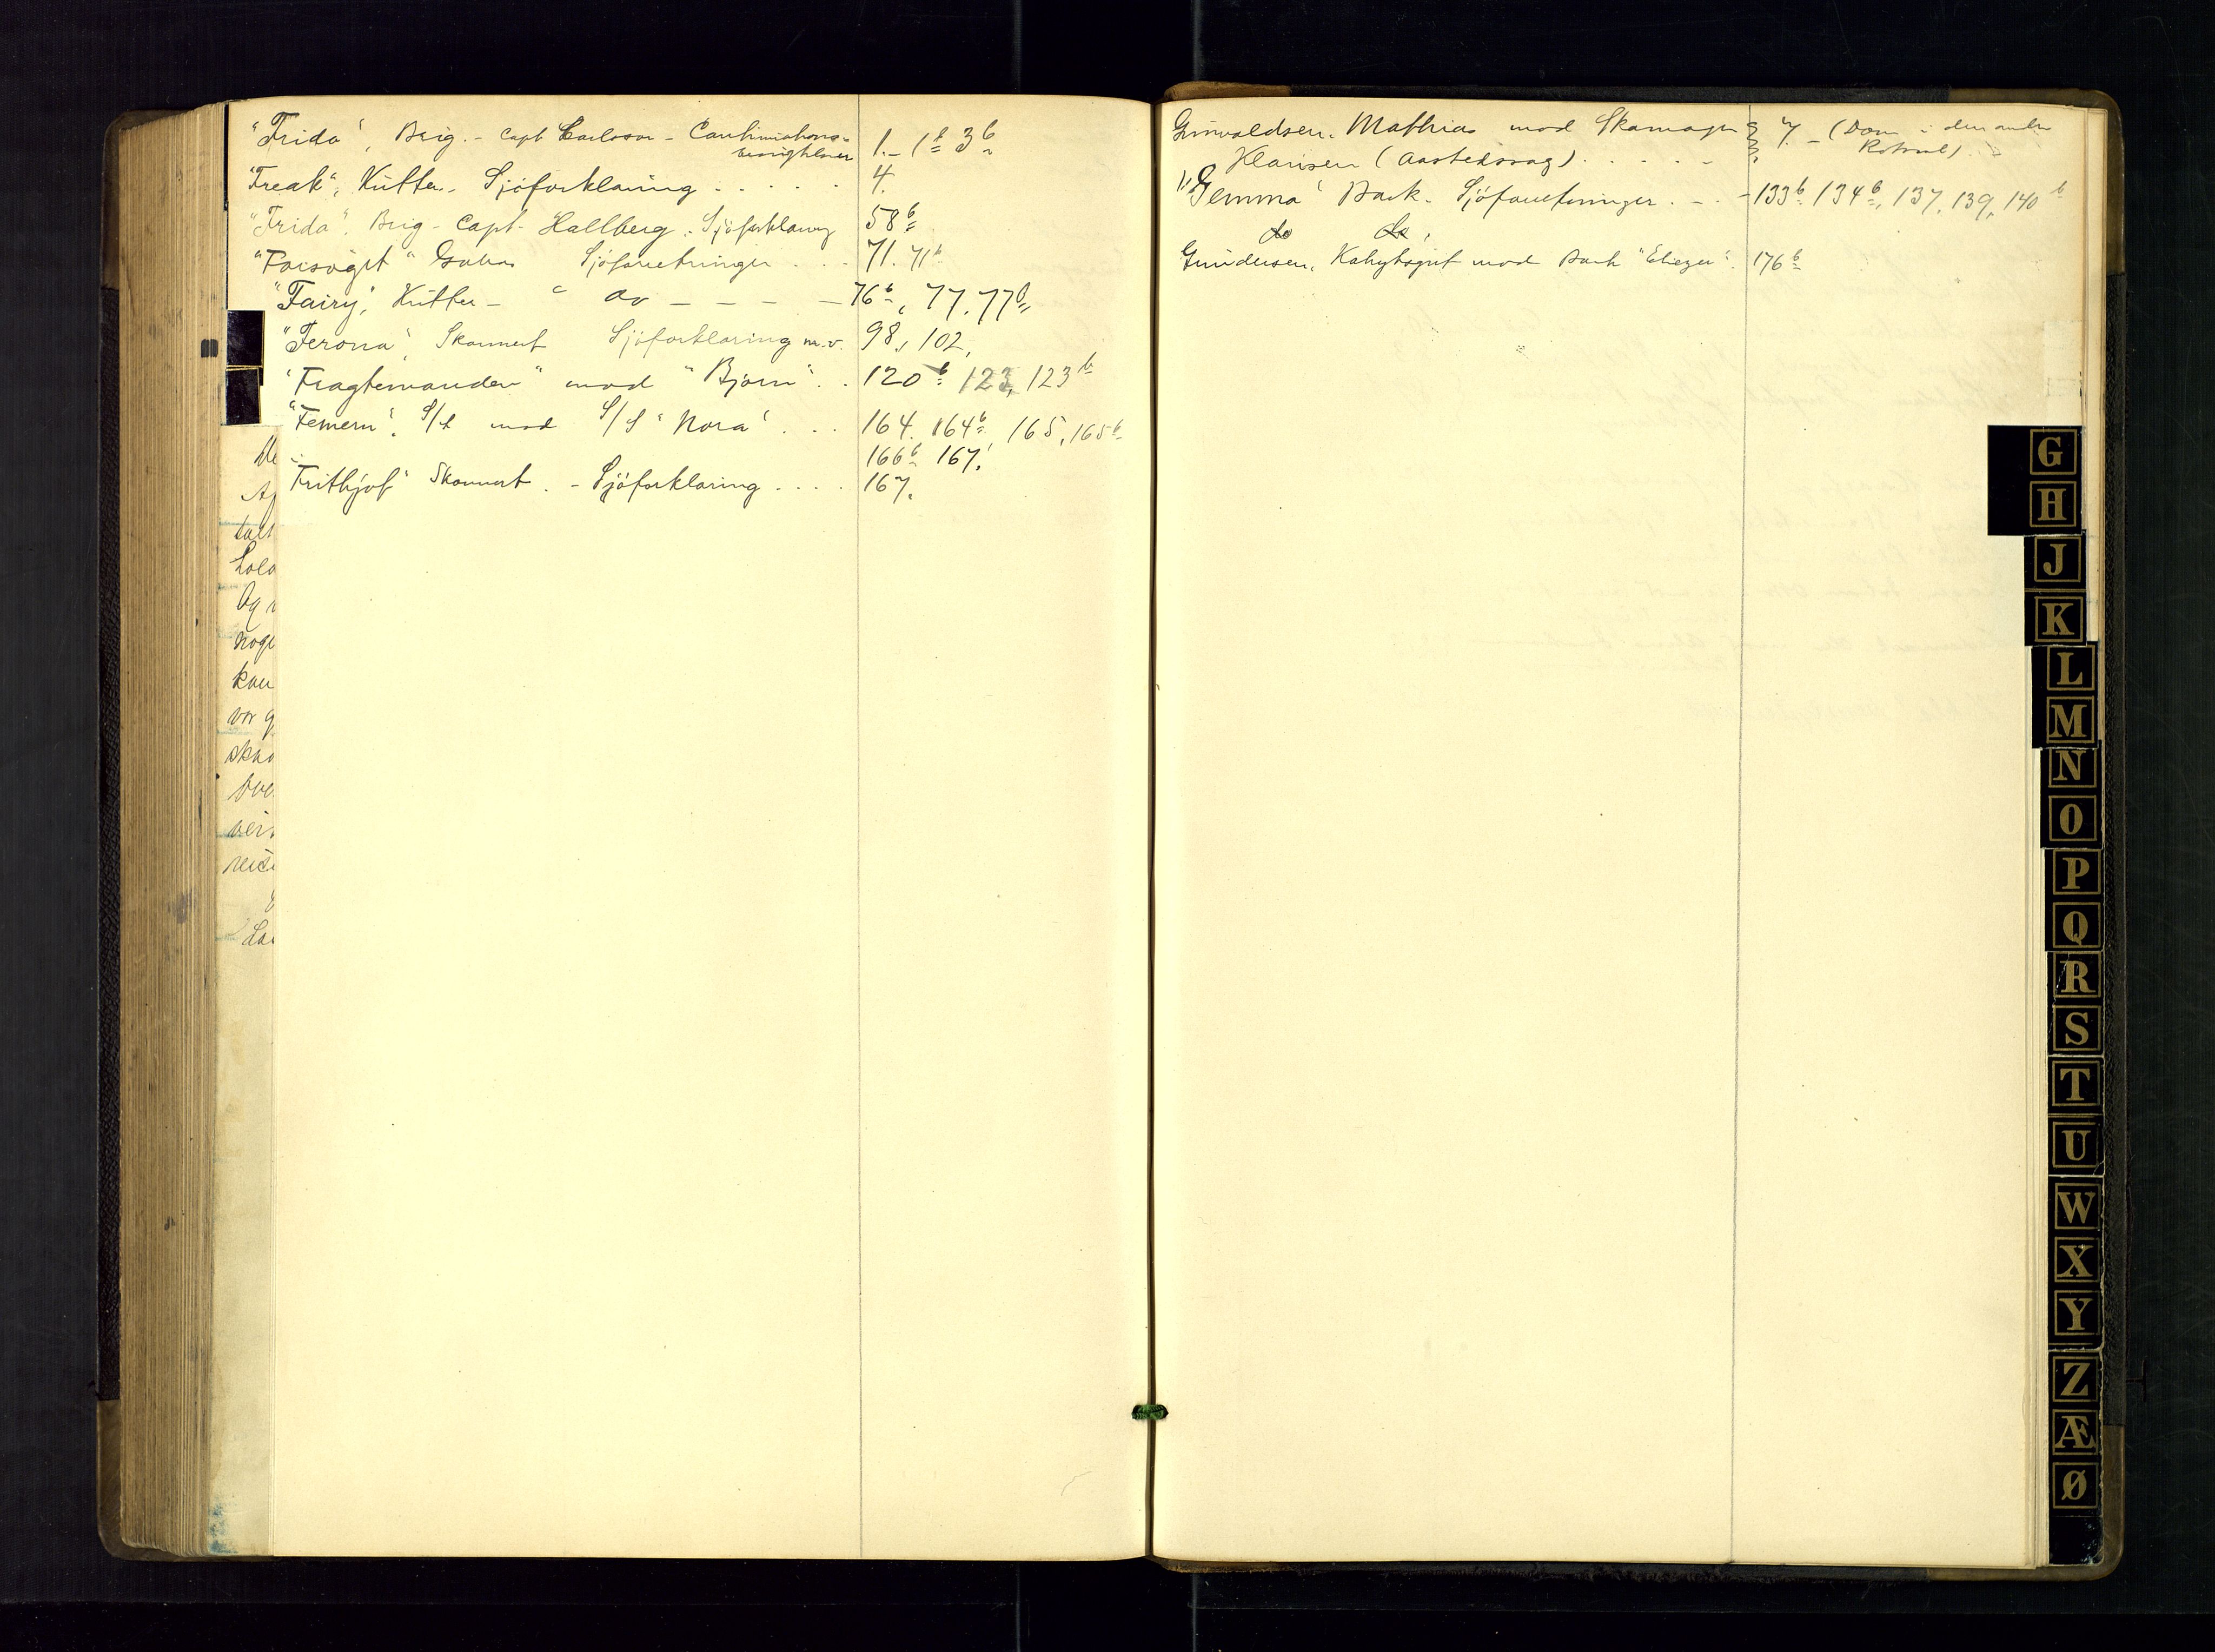 "Frida", Brig. - Capt Carlsson - Continuations-
1.- 1b 3b
"Freak", Kutter - Sjöforklaring . . . . .
4.
"Frida". Brig - Capt - Hallberg. Sjöforklaring
58b
"Forsöget" Galias Sjöforretninger . . .
71. 71b
"Fairy", Kutter - " do - - - -
76b, 77. 77b
"Ferona", Skonnert Sjöforklaring m.v.
98, 102,
"Fragtemanden" mod "Bjørn" . .
120b 123, 123b
"Femern", S/S mod S/S "Nora" . . .
164. 164b, 165, 165b
166b 167.
Frithjof" Skonnert. - Sjöforklaring . . . .
167.
Me
talt
Lolo
Og
noge
kan
var g
Grunvaldsen, Mathias mod Skomager
7. - (Dom i den anden
Hansen (Aastedssag) . . . . -
"Gemma" Bark. Sjöforretninger . - .
133b 134b, 137, 139, 140b
do do,
Gundersen, Kahytsgut mod Bark "Eliezer".
176b
G
H
J
K
L
M
N
O
P
Q
R
S
T
U
W
X
Y
Z
Æ
Ø